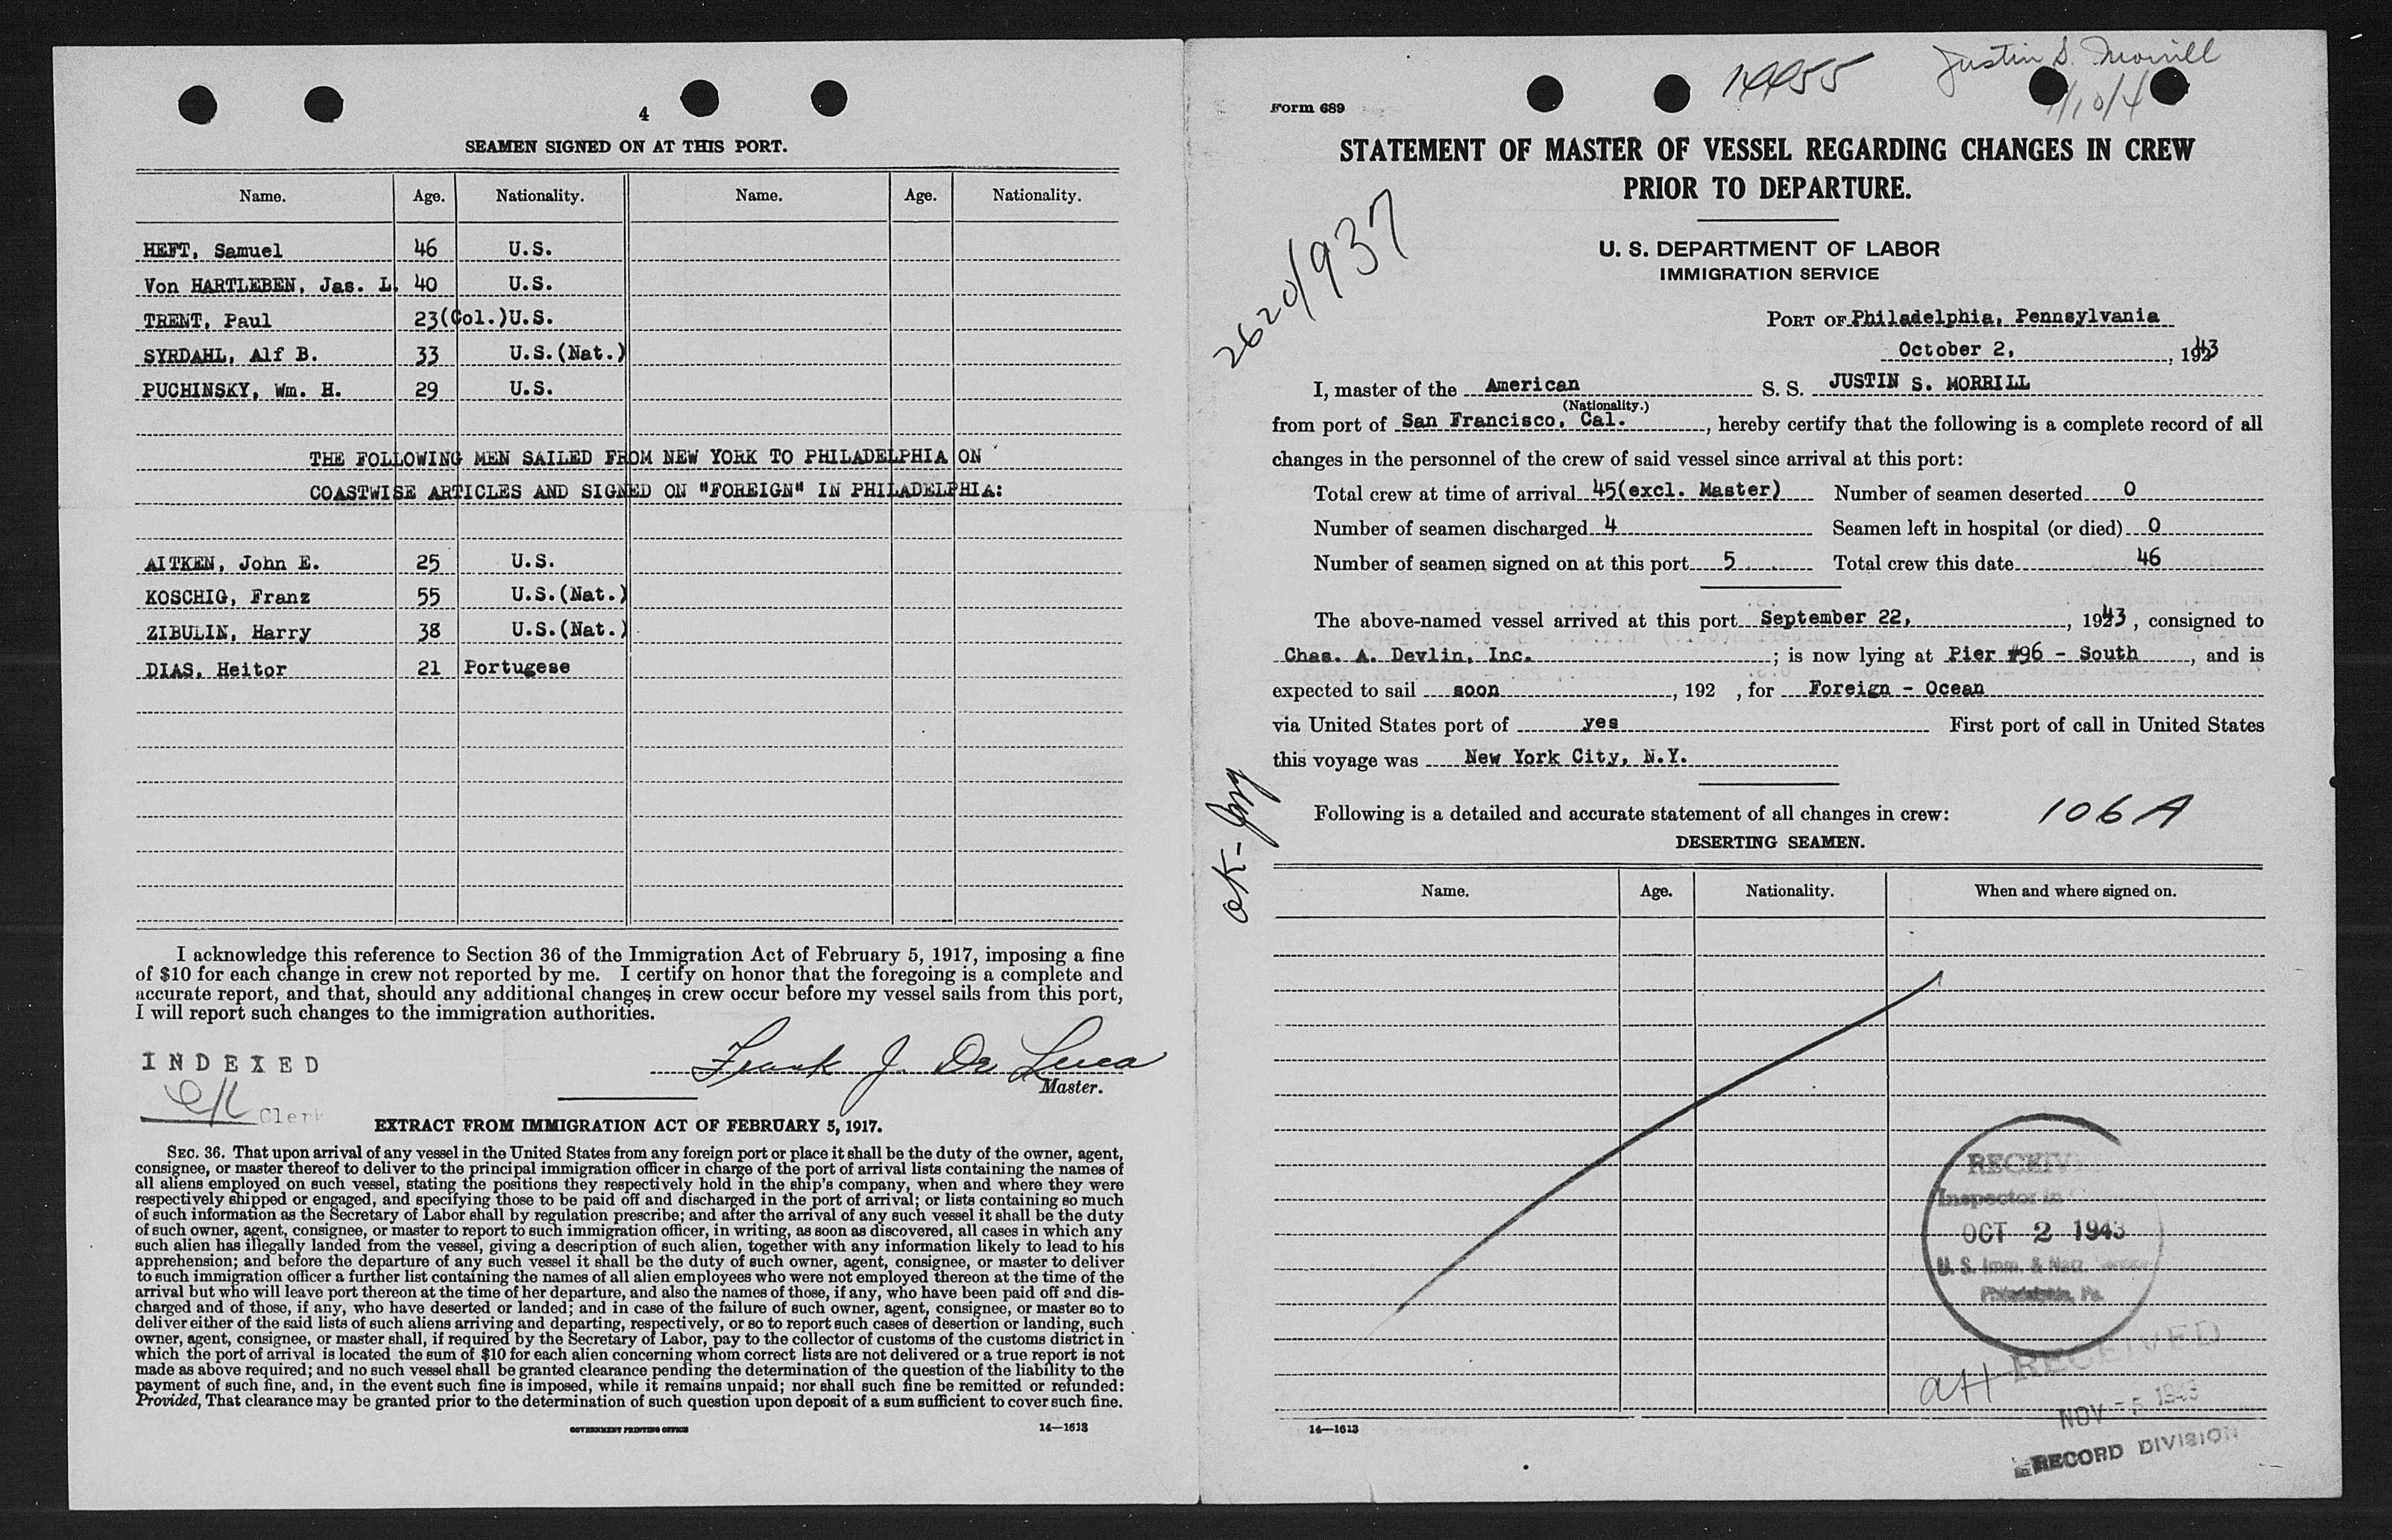 4
SEAMEN SIGNED ON AT THIS PORT.
Name. Age. Nationality. Name. Age. Nationality.
HEFT, Samuel 46 U.S.
Von HARTLEBEN, Jas. L. 40 U.S.
TRENT, Paul 23(Col.)U.S.
SYRDAHL, Alf B. 33 U.S.(Nat.)
PUCHINSKY, Wm. H. 29 U.S.
THE FOLLOWING MEN SAILED FROM NEW YORK TO PHILADELPHIA ON
COASTWISE ARTICLES AND SIGNED ON "FOREIGN" IN PHILADELPHIA:
AITKEN, John E. 25 U.S.
KOSCHIG, Franz 55 U.S.(Nat.)
ZIBULIN, Harry 38 U.S.(Nat.)
DIAS, Heitor 21 Portugese
I acknowledge this reference to Section 36 of the Immigration Act of February 5, 1917, imposing a fine
of $10 for each change in crew not reported by me. I certify on honor that the foregoing is a complete and
accurate report, and that, should any additional changes in crew occur before my vessel sails from this port,
I will report such changes to the immigration authorities.
INDEXED
Frank J. De Luca
Master.
Clerk
EXTRACT FROM IMMIGRATION ACT OF FEBRUARY 5, 1917.
SEC. 36. That upon arrival of any vessel in the United States from any foreign port or place it shall be the duty of the owner, agent,
consignee, or master thereof to deliver to the principal immigration officer in charge of the port of arrival lists containing the names of
all aliens employed on such vessel, stating the positions they respectively hold in the ship's company, when and where they were
respectively shipped or engaged, and specifying those to be paid off and discharged in the port of arrival; or lists containing so much
of such information as the Secretary of Labor shall by regulation prescribe; and after the arrival of any such vessel it shall be the duty
of such owner, agent, consignee, or master to report to such immigration officer, in writing, as soon as discovered, all cases in which any
such alien has illegally landed from the vessel, giving a description of such alien, together with any information likely to lead to his
apprehension; and before the departure of any such vessel it shall be the duty of such owner, agent, consignee, or master to deliver
to such immigration officer a further list containing the names of all alien employees who were not employed thereon at the time of the
arrival but who will leave port thereon at the time of her departure, and also the names of those, if any, who have been paid off and dis-
charged and of those, if any, who have deserted or landed; and in case of the failure of such owner, agent, consignee, or master so to
deliver either of the said lists of such aliens arriving and departing, respectively, or so to report such cases of desertion or landing, such
owner, agent, consignee, or master shall, if required by the Secretary of Labor, pay to the collector of customs of the customs district in
which the port of arrival is located the sum of $10 for each alien concerning whom correct lists are not delivered or a true report is not
made as above required; and no such vessel shall be granted clearance pending the determination of the question of the liability to the
payment of such fine, and, in the event such fine is imposed, while it remains unpaid; nor shall such fine be remitted or refunded:
Provided, That clearance may be granted prior to the determination of such question upon deposit of a sum sufficient to cover such fine.
GOVERNMENT PRINTING OFFICE 14—1613
Justin S. Morrill
14455
Form 689
STATEMENT OF MASTER OF VESSEL REGARDING CHANGES IN CREW
PRIOR TO DEPARTURE.
2620/937
U. S. DEPARTMENT OF LABOR
IMMIGRATION SERVICE
PORT OF Philadelphia, Pennsylvania
October 2, , 1943
I, master of the American S. S. JUSTIN S. MORRILL
(Nationality.)
from port of San Francisco, Cal. , hereby certify that the following is a complete record of all
changes in the personnel of the crew of said vessel since arrival at this port:
Total crew at time of arrival 45(excl. Master) Number of seamen deserted 0
Number of seamen discharged 4 Seamen left in hospital (or died) 0
Number of seamen signed on at this port 5 Total crew this date 46
The above-named vessel arrived at this port September 22, , 1943, consigned to
Chas. A. Devlin, Inc. ; is now lying at Pier #96 - South , and is
expected to sail soon , 192 , for Foreign - Ocean
via United States port of yes First port of call in United States
this voyage was New York City, N.Y.
OK-
Following is a detailed and accurate statement of all changes in crew: 106A
DESERTING SEAMEN.
Name. Age. Nationality. When and where signed on.
RECEIVED
Inspector in
OCT 2 1943
U. S. Imm. & Natz. Service
Philadelphia, Pa.
RECEIVED
aH
NOV -5 1943
RECORD DIVISION
14—1613